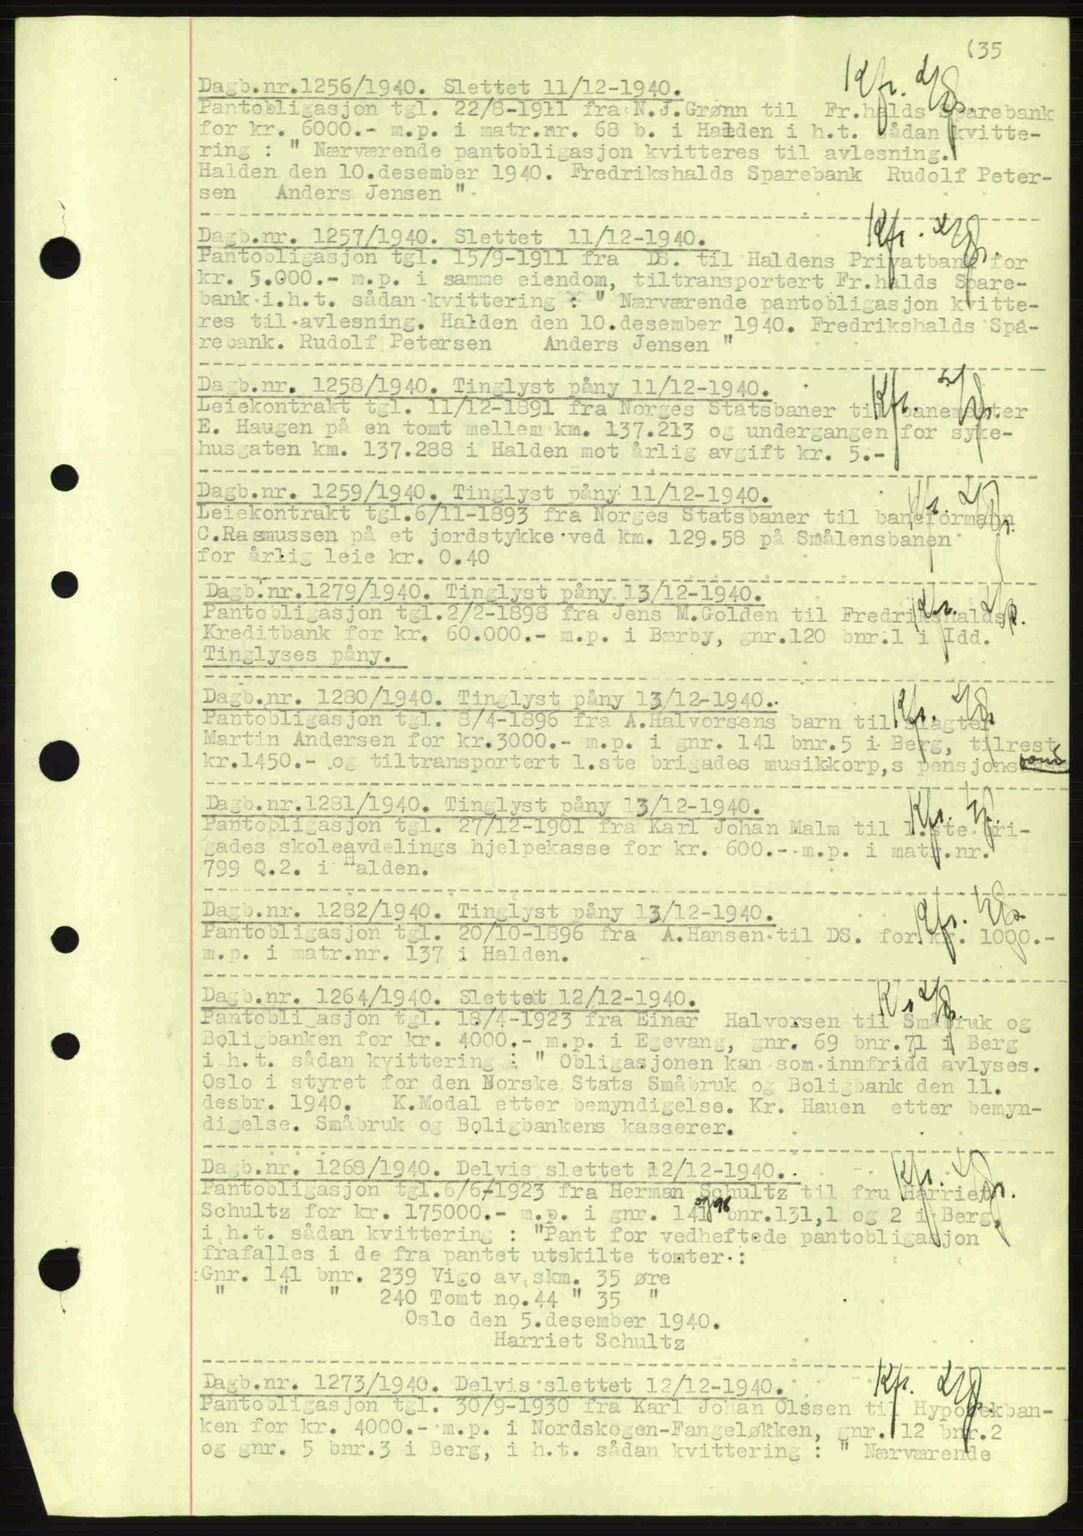 135
Dagb.nr.1256/1940. Slettet 11/12-1940.
Pantobligasjon tgl. 22/8-1911 fra N.J.Grønn til Fr.halds Sparebank
for kr. 6000.- m.p. i matr.nr. 68 b. i Halden i h.t. sådan kvitte-
ring : " Nærværende pantobligasjon kvitteres til avlesning.
Halden den 10.desember 1940. Fredrikshalds Sparebank Rudolf Peter-
sen Anders Jensen "
Dagb.nr. 1257/1940. Slettet 11/12-1940.
Pantobligasjon tgl. 15/9-1911 fra DS. til Haldens Privatbank for
kr. 5.000.- m.p. i samme eiendom, tiltransportert Fr.halds Spare-
bank i.h.t. sådan kvittering : " Nærværende pantobligasjon kvitte-
res til avlesning. Halden den 10.desember 1940. Fredrikshalds Spa-
rebank. Rudolf Petersen Anders Jensen "
Dagb.nr. 1258/1940. Tinglyst påny 11/12-1940.
Leiekontrakt tgl. 11/12-1891 fra Norges Statsbaner til banemester
E. Haugen på en tomt mellem km. 137.213 og undergangen for syke-
husgaten km. 137.288 i Halden mot årlig avgift kr. 5.-
Dagb.nr. 1259/1940. Tinglyst påny 11/12-1940.
Leiekontrakt tgl.6/11-1893 fra Norges Statsbaner til baneformann
C.Rasmussen på et jordstykke ved km. 129.58 på Smålensbanen
for årlig leie kr. 0.40
Dagb.nr.1279/1940. Tinglyst påny 13/12-1940.
Pantobligasjon tgl.2/2-1898 fra Jens M.Golden til Fredrikshalds
Kreditbank for kr. 60.000.- m.p. i Bærby, gnr.120 bnr.1 i Idd.
Tinglyses påny.
Dagb.nr. 1280/1940. Tinglyst påny 13/12-1940.
Pantobligasjon tgl. 8/4-1896 fra A.Halvorsens barn til slagter
Martin Andersen for kr.3000.- m.p. i gnr. 141 bnr.5 i Berg, tilrest
kr.1450.- og tiltransportert 1.ste brigades musikkorp,s pensjons fond
Dagb.nr.1281/1940. Tinglyst påny 13/12-1940.
Pantobligasjon tgl. 27/12-1901 fra Karl Johan Malm til 1.ste bri-
gades skoleavdelings hjelpekasse for kr. 600.- m.p. i matr.nr.
799 Q.2. i Halden.
Dagb.nr. 1282/1940. Tinglyst påny 13/12-1940.
Pantobligasjon tgl. 20/10-1896 fra A.Hansen til DS. for kr. 1000.-
m.p. i matr.nr. 137 i Halden.
Dagb.nr. 1264/1940. Slettet 12/12-1940.
Pantobligasjon tgl. 18/4-1923 fra Einar Halvorsen til Småbruk og
Boligbanken for kr. 4000.- m.p. i Egevang, gnr. 69 bnr.71 i Berg
i h.t. sådan kvittering : " Obligasjonen kan som innfridd avlyses.
Oslo i styret for den Norske Stats Småbruk og Boligbank den 11.
desbr. 1940. K.Modal etter bemyndigelse. Kr. Hauen etter bemyn-
digelse. Småbruk og Boligbankens kasserer.
Dagb.nr. 1268/1940. Delvis slettet 12/12-1940.
Pantobligasjon tgl.6/6-1923 fra Herman Schultz til fru Harriet
Schultz for kr. 175000.- m.p. i gnr. 141 bnr.131,1 og 2 i Berg,
i h.t. sådan kvittering : "Pant for vedheftede pantobligasjon
frafalles i de fra pantet utskilte tomter :
Gnr. 141 bnr. 239 Vigo av skm. 35 øre
" " " 240 Tomt no.44 " 35 "
Oslo den 5.desember 1940.
Harriet Schultz
Dagb.nr. 1273/1940. Delvis slettet 12/12-1940.
Pantobligasjon tgl. 30/9-1930 fra Karl Johan Olssen til Hypotekban-
ken for kr. 4000.- m.p. i Nordskogen-Fangeløkken, gnr. 12 bnr.2
og gnr. 5 bnr.3 i Berg, i h.t. sådan kvittering : " Nærværende